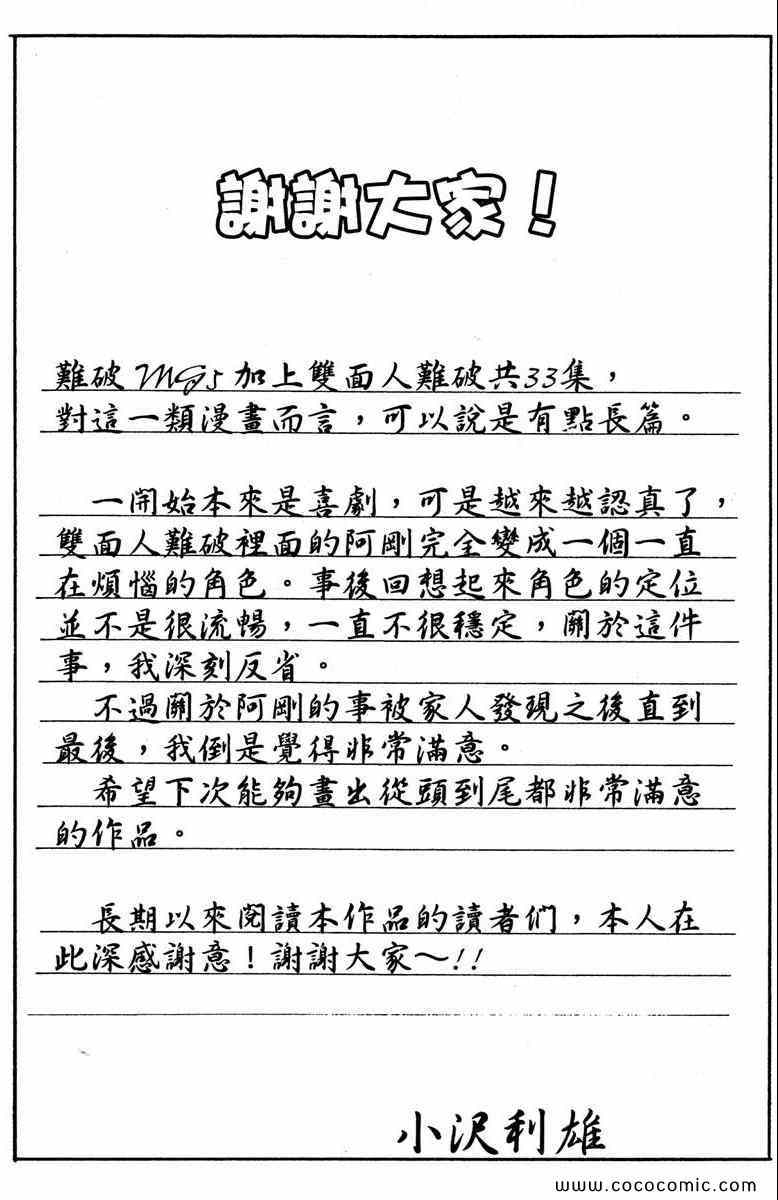 謝謝大家！
難破MG5加上雙面人難破共33集，
對這一類漫畫而言，可以說是有點長篇。
一開始本來是喜劇，可是越來越認真了，
雙面人難破裡面的阿剛完全變成一個一直
在煩惱的角色。事後回想起來角色的定位
並不是很流暢，一直不很穩定，關於這件
事，我深刻反省。
不過關於阿剛的事被家人發現之後直到
最後，我倒是覺得非常滿意。
希望下次能夠畫出從頭到尾都非常滿意
的作品。
長期以來閱讀本作品的讀者們，本人在
此深感謝意！謝謝大家～!!
小沢利雄
www.cococomic.com